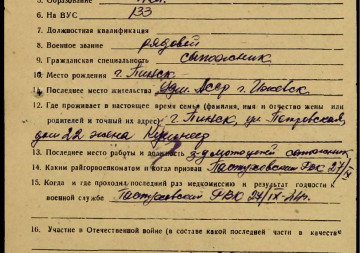 5. Образование
6. На ВУС 133
7. Должностная квалификация
8. Военное звание рядовой
9. Гражданская специальность сапожник
10. Место рождения г. Пинск
11. Последнее место жительства Удм АССР г Ижевск
12. Где проживает в настоящее время семья (фамилия, имя и отчество жены или
родителей и точный их адрес) г. Пинск, ул Петровская
дом 22 жена
13. Последнее место работы и должность сапожник
14. Каким райгорвоенкоматом и когда призван Пастуховским РВК 27/IX
15. Когда и где проходил последний раз медкомиссию и результат годности к
военной службе Пастуховский РВК 27/IX-44г.
16. Участие в Отечественной войне (в составе какой последней части в качестве